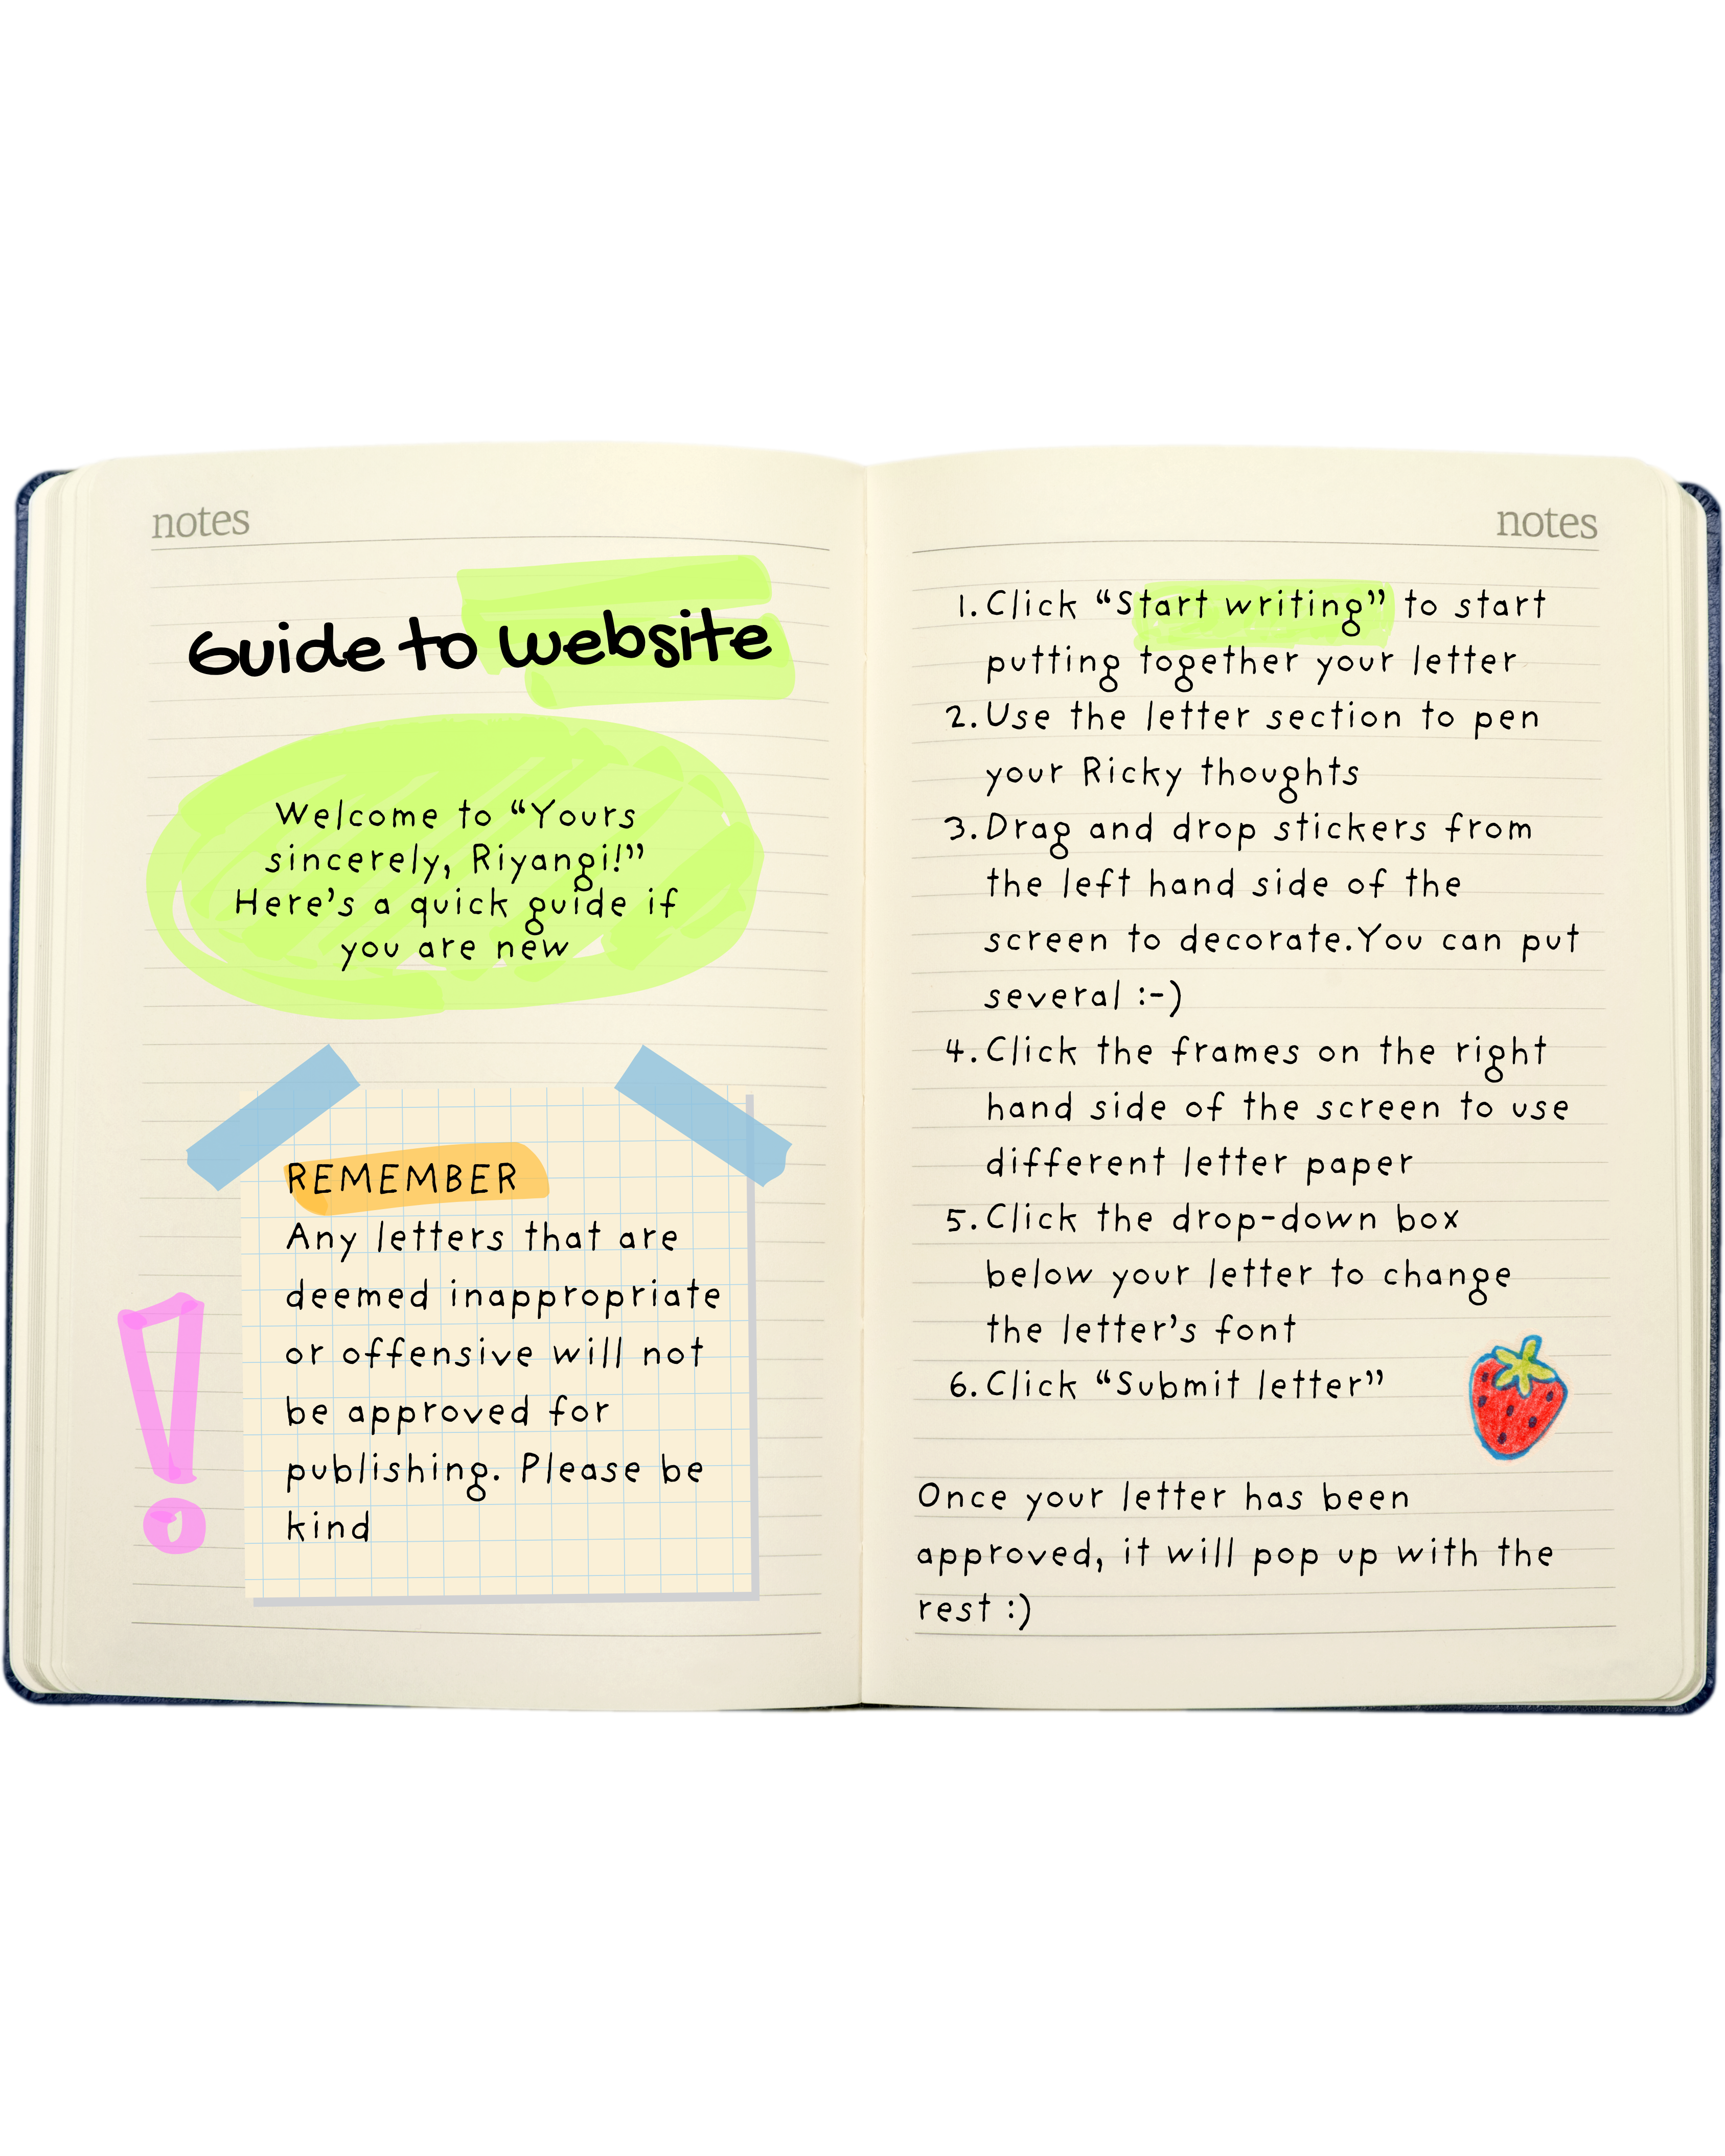 notes
Guide to website
Welcome to “Yours
sincerely, Riyangi!”
Here’s a quick guide if
you are new
REMEMBER
Any letters that are
deemed inappropriate
or offensive will not
be approved for
publishing. Please be
kind
notes
1. Click “Start writing” to start
putting together your letter
2. Use the letter section to pen
your Ricky thoughts
3. Drag and drop stickers from
the left hand side of the
screen to decorate.You can put
several :-)
4. Click the frames on the right
hand side of the screen to use
different letter paper
5. Click the drop-down box
below your letter to change
the letter’s font
6. Click “Submit letter”
Once your letter has been
approved, it will pop up with the
rest :)